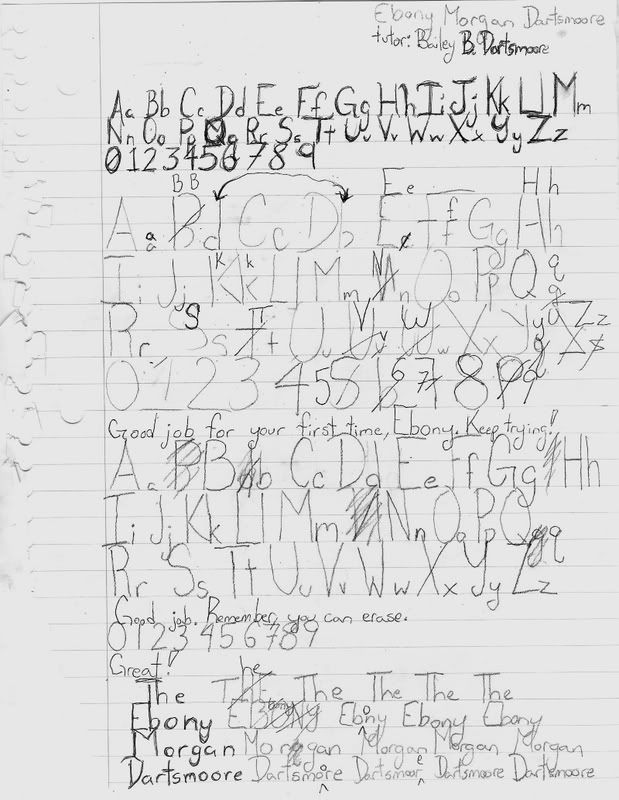 Ebony Morgan Dartsmoore
tutor: Bailey B. Dartsmoore
Aa Bb Cc Dd Ee Ff Gg Hh Ii Jj Kk Ll Mm
Nn Oo Pp Qq Rr Ss Tt Uu Vv Ww Xx Yy Zz
0 1 2 3 4 5 6 7 8 9
B B Ee Hh
Aa Bd Cc Db Ee Ff Gg Hh
K k q
Ii Jj Kk Ll Mm Nn Oo Pp Qq
S T V W Zz
Rr Ss Tt Uu Vv Ww Xx Yy
0 1 2 3 4 5 8 6 7 8 9
Good job for your first time, Ebony. Keep trying!
Aa B Bb Cc Dd Ee Ff Gg Hh
Ii Jj Kk Ll Mm Nn Oo Pp Qq
Rr Ss Tt Uu Vv Ww Xx Yy Zz
Good job. Remember, you can erase.
0 1 2 3 4 5 6 7 8 9
Great!
he
The THE The The The The
ebony o
Ebony EBONY Ebny Ebony Ebony
Morgan Morgan Morgan Morgan Morgan
o e
Dartsmoore Dartsmore Dartsmoor Dartsmoore Dartsmoore